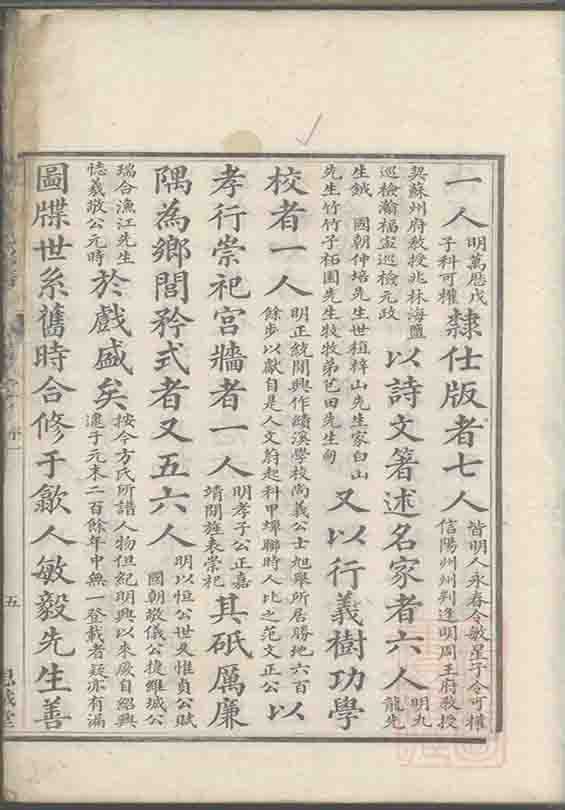 一人明萬歷戊子科可權隸仕版者七人皆明人永春令敏星子令可權信陽州州判逢明周王府教授
契蘇州府教授兆林海鹽巡檢瀚福寍巡檢元政以詩文箸述名家者六人明九龍先
生鉞國朝仲培先生世植梓山先生家白山先生竹竹子栢圃先生牧牧弟芑田先生甸又以行義樹功學
校者一人明正統閒興作績溪學校尚義公士旭舉所居勝地六百餘步以獻自是人文蔚起科甲蟬聯時人比之范文正公以
孝行崇祀宮牆者一人明孝子公正嘉靖閒旌表崇祀其砥厲廉
隅為鄉閭矜式者又五六人明以恒公世及惟貞公賦國朝敬儀公捷維城公
瑞合漁江先生憓義敬公元時於戲盛矣按今方氏所譜人物但紀明興以來厥自紹興逮于元末二百餘年中無一登載者疑亦有漏
圖牒世系舊時合修于歙人敏毅先生善
五